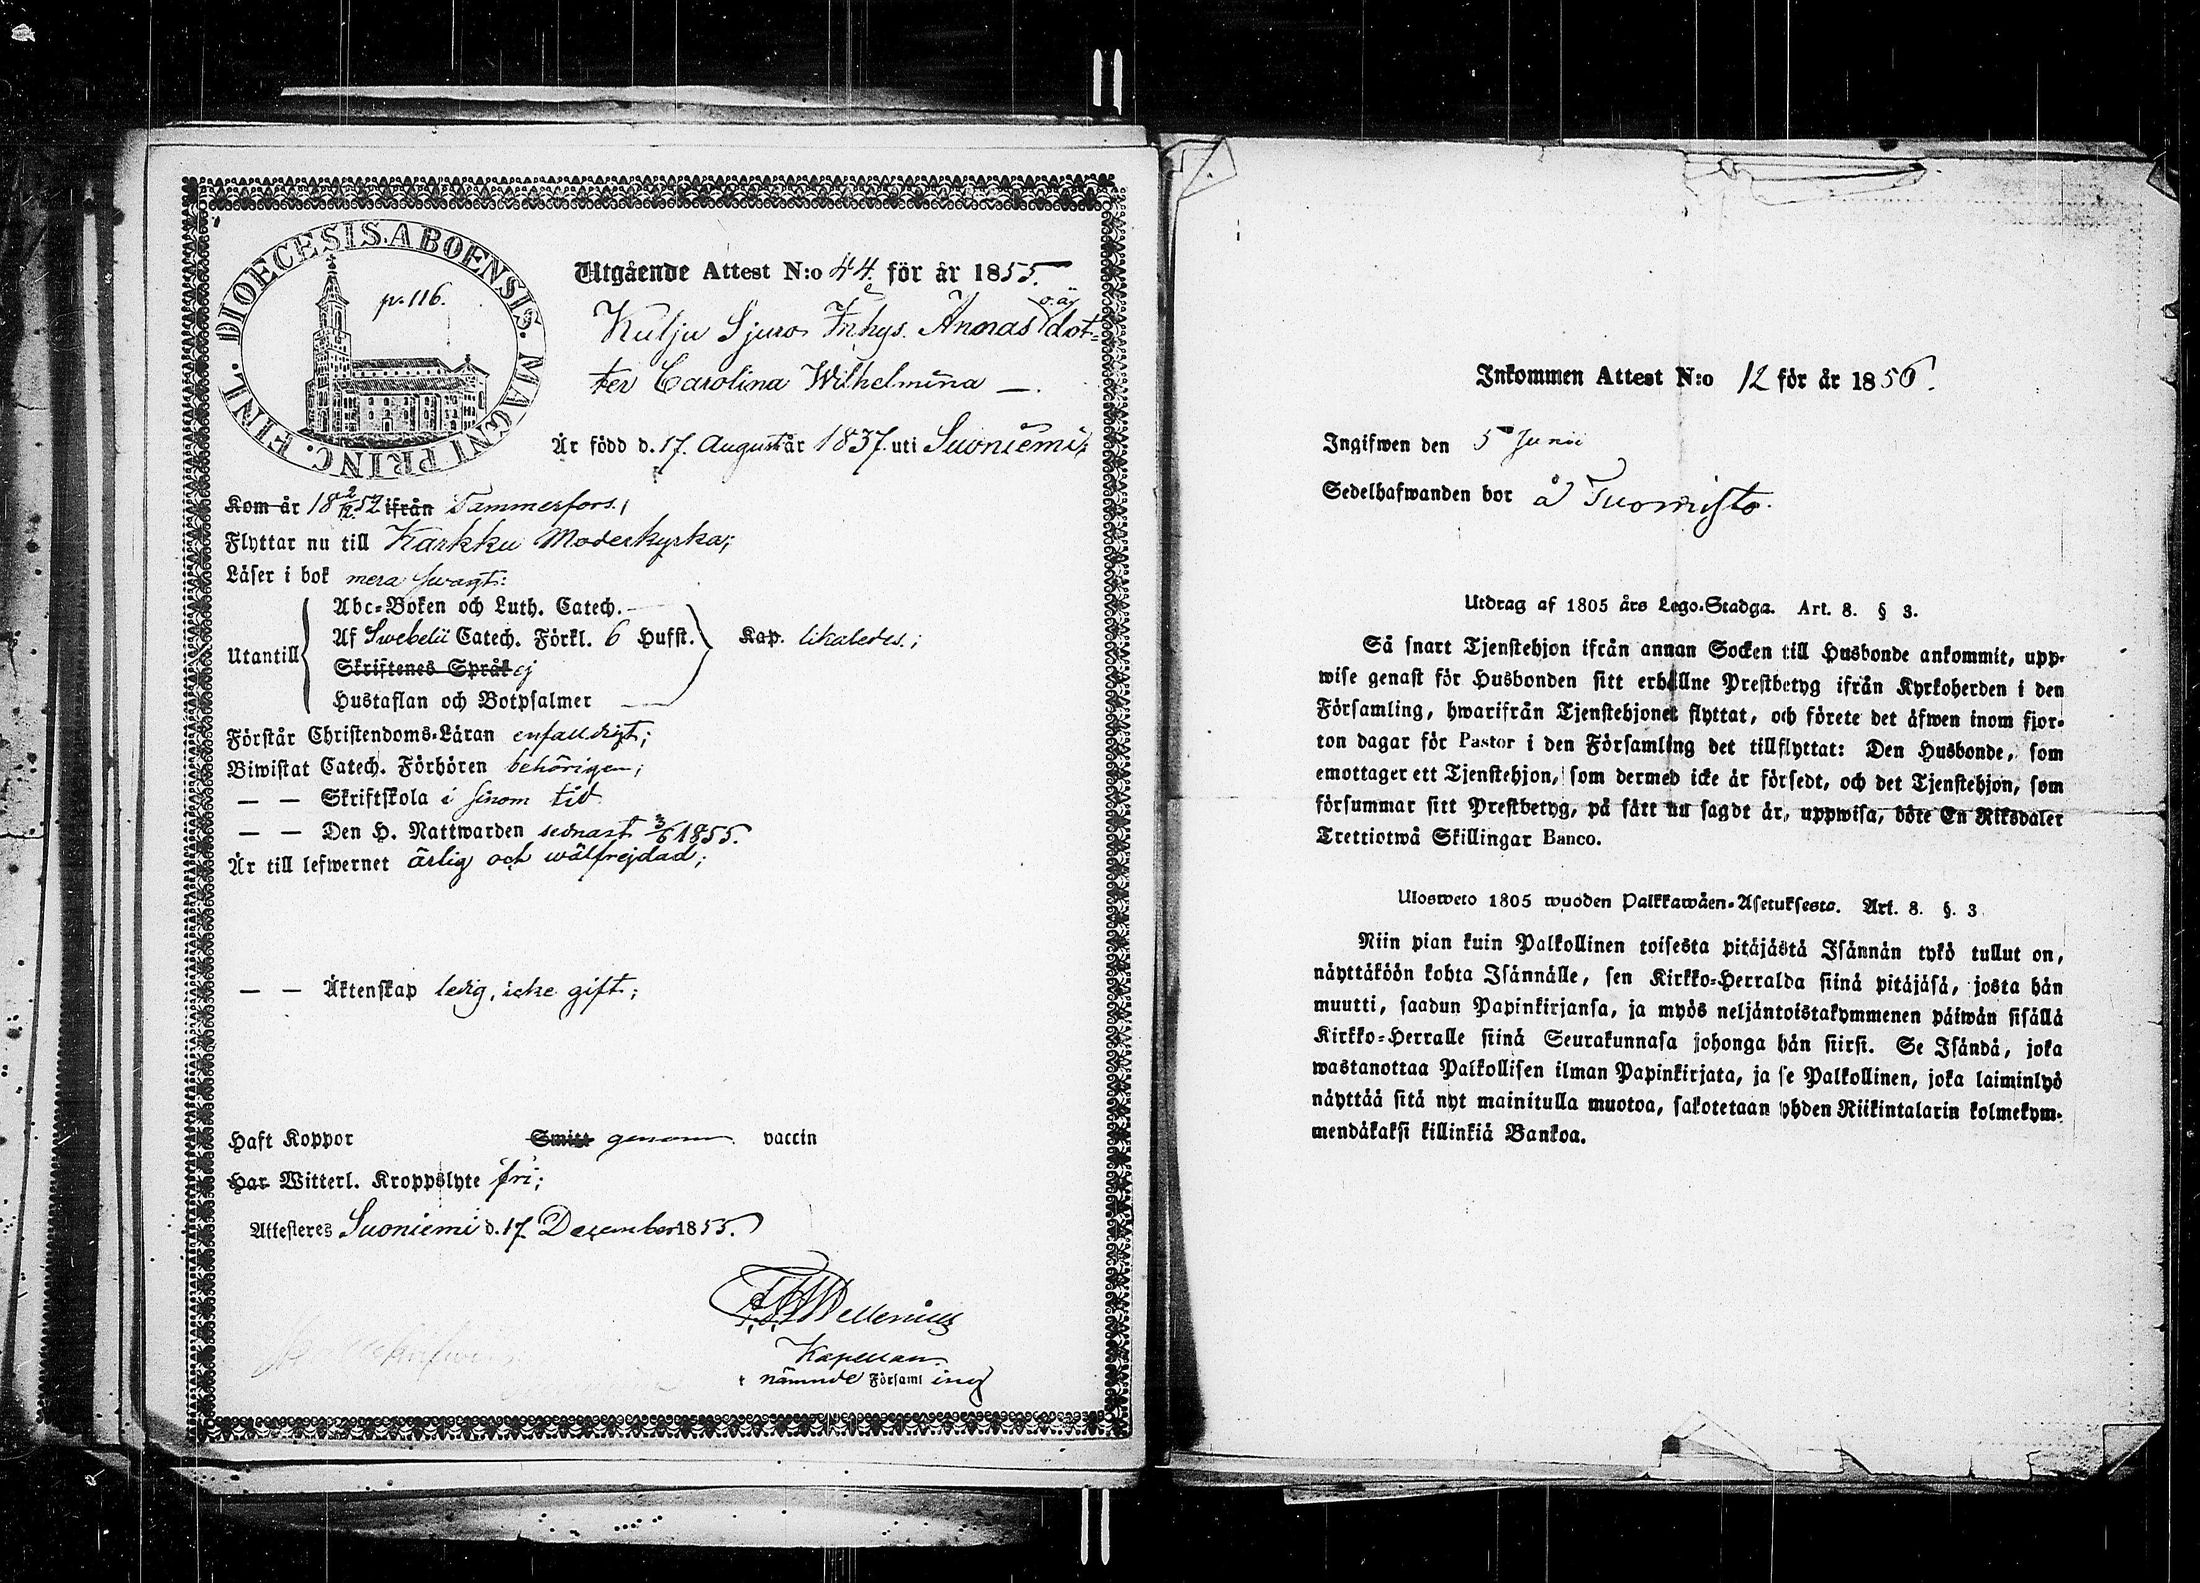 DIOECESIS. ABOENSIS. MAGNI PRINC. FINL.
p. 116.
Utgående Attest N:o 44. för år 1855.
o. äg
Kulju Sjuro Inhys. Annas dot=
ter Carolina Wilhelmina —.
Är född d. 17. August år 1837. uti Suoniemi;
Kom år 18 2/12 52 ifrån Tammerfors;
Flyttar nu till Karkku Moderkyrka;
Läser i bok mera swagt:
Utantill
Abc=Boken och Luth. Catech. —
Af Swebelii Catech. Förkl. 6 Hufst.
Skriftenes Språk ej
Hustaflan och Botpsalmer —
Kap. likaledes.;
Förstår Christendoms=Läran enfalldigt;
Biwistat Catech. Förhören behörigen;
— — Skriftskola i sinom tid
— — Den H. Nattwarden sednast 3/6 1855.
Är till lefwernet ärlig och wälfrejdad;
— — Äktenskap ledig, icke gift;
Haft Koppor Smitt genom vaccin
Har Witterl. Kroppslyte fri;
Attesteres Suoniemi d. 17 December 1855.
Wellenius
Kapellan.
i nämnde Församl ing
Inkommen Attest N:o 12 för år 1856.
Ingifwen den 5 Junii
Sedelhafwanden bor å Tuomisto.
Utdrag af 1805 års Lego=Stadga. Art. 8. § 3.
Så snart Tjenstehjon ifrån annan Socken till Husbonde ankommit, upp=
wise genast för Husbonden sitt erhållne Prestbetyg ifrån Kyrkoherden i den
Församling, hwarifrån Tjenstehjonet flyttat, och förete det äfwen inom fjor=
ton dagar för Pastor i den Församling det tillflyttat: Den Husbonde, som
emottager ett Tjenstehjon, som dermed icke är försedt, och det Tjenstehjon, som
försummar sitt Prestbetyg, på sätt nu sagdt är, uppwisa, böte En Riksdaler
Trettiotwå Skillingar Banco.
Ulosweto 1805 wuoden Palkkawäen=Asetuksesta. Art. 8. §. 3
Niin pian kuin Palkollinen toisesta pitäjästä Isännän tykö tullut on,
näyttäköön kohta Isännälle, sen Kirkko=Herralda siinä pitäjäsä, josta hän
muutti, saadun Papinkirjansa, ja myös neljäntoistakymmenen päiwän sisällä
Kirkko=Herralle siinä Seurakunnasa johonga hän siirsi. Se Isändä, joka
wastanottaa Palkollisen ilman Papinkirjata, ja se Palkollinen, joka laiminlyö
näyttää sitä nyt mainitulla muotoa, sakotetaan yhden Riikintalarin kolmekym=
mendäkaksi killinkiä Bankoa.